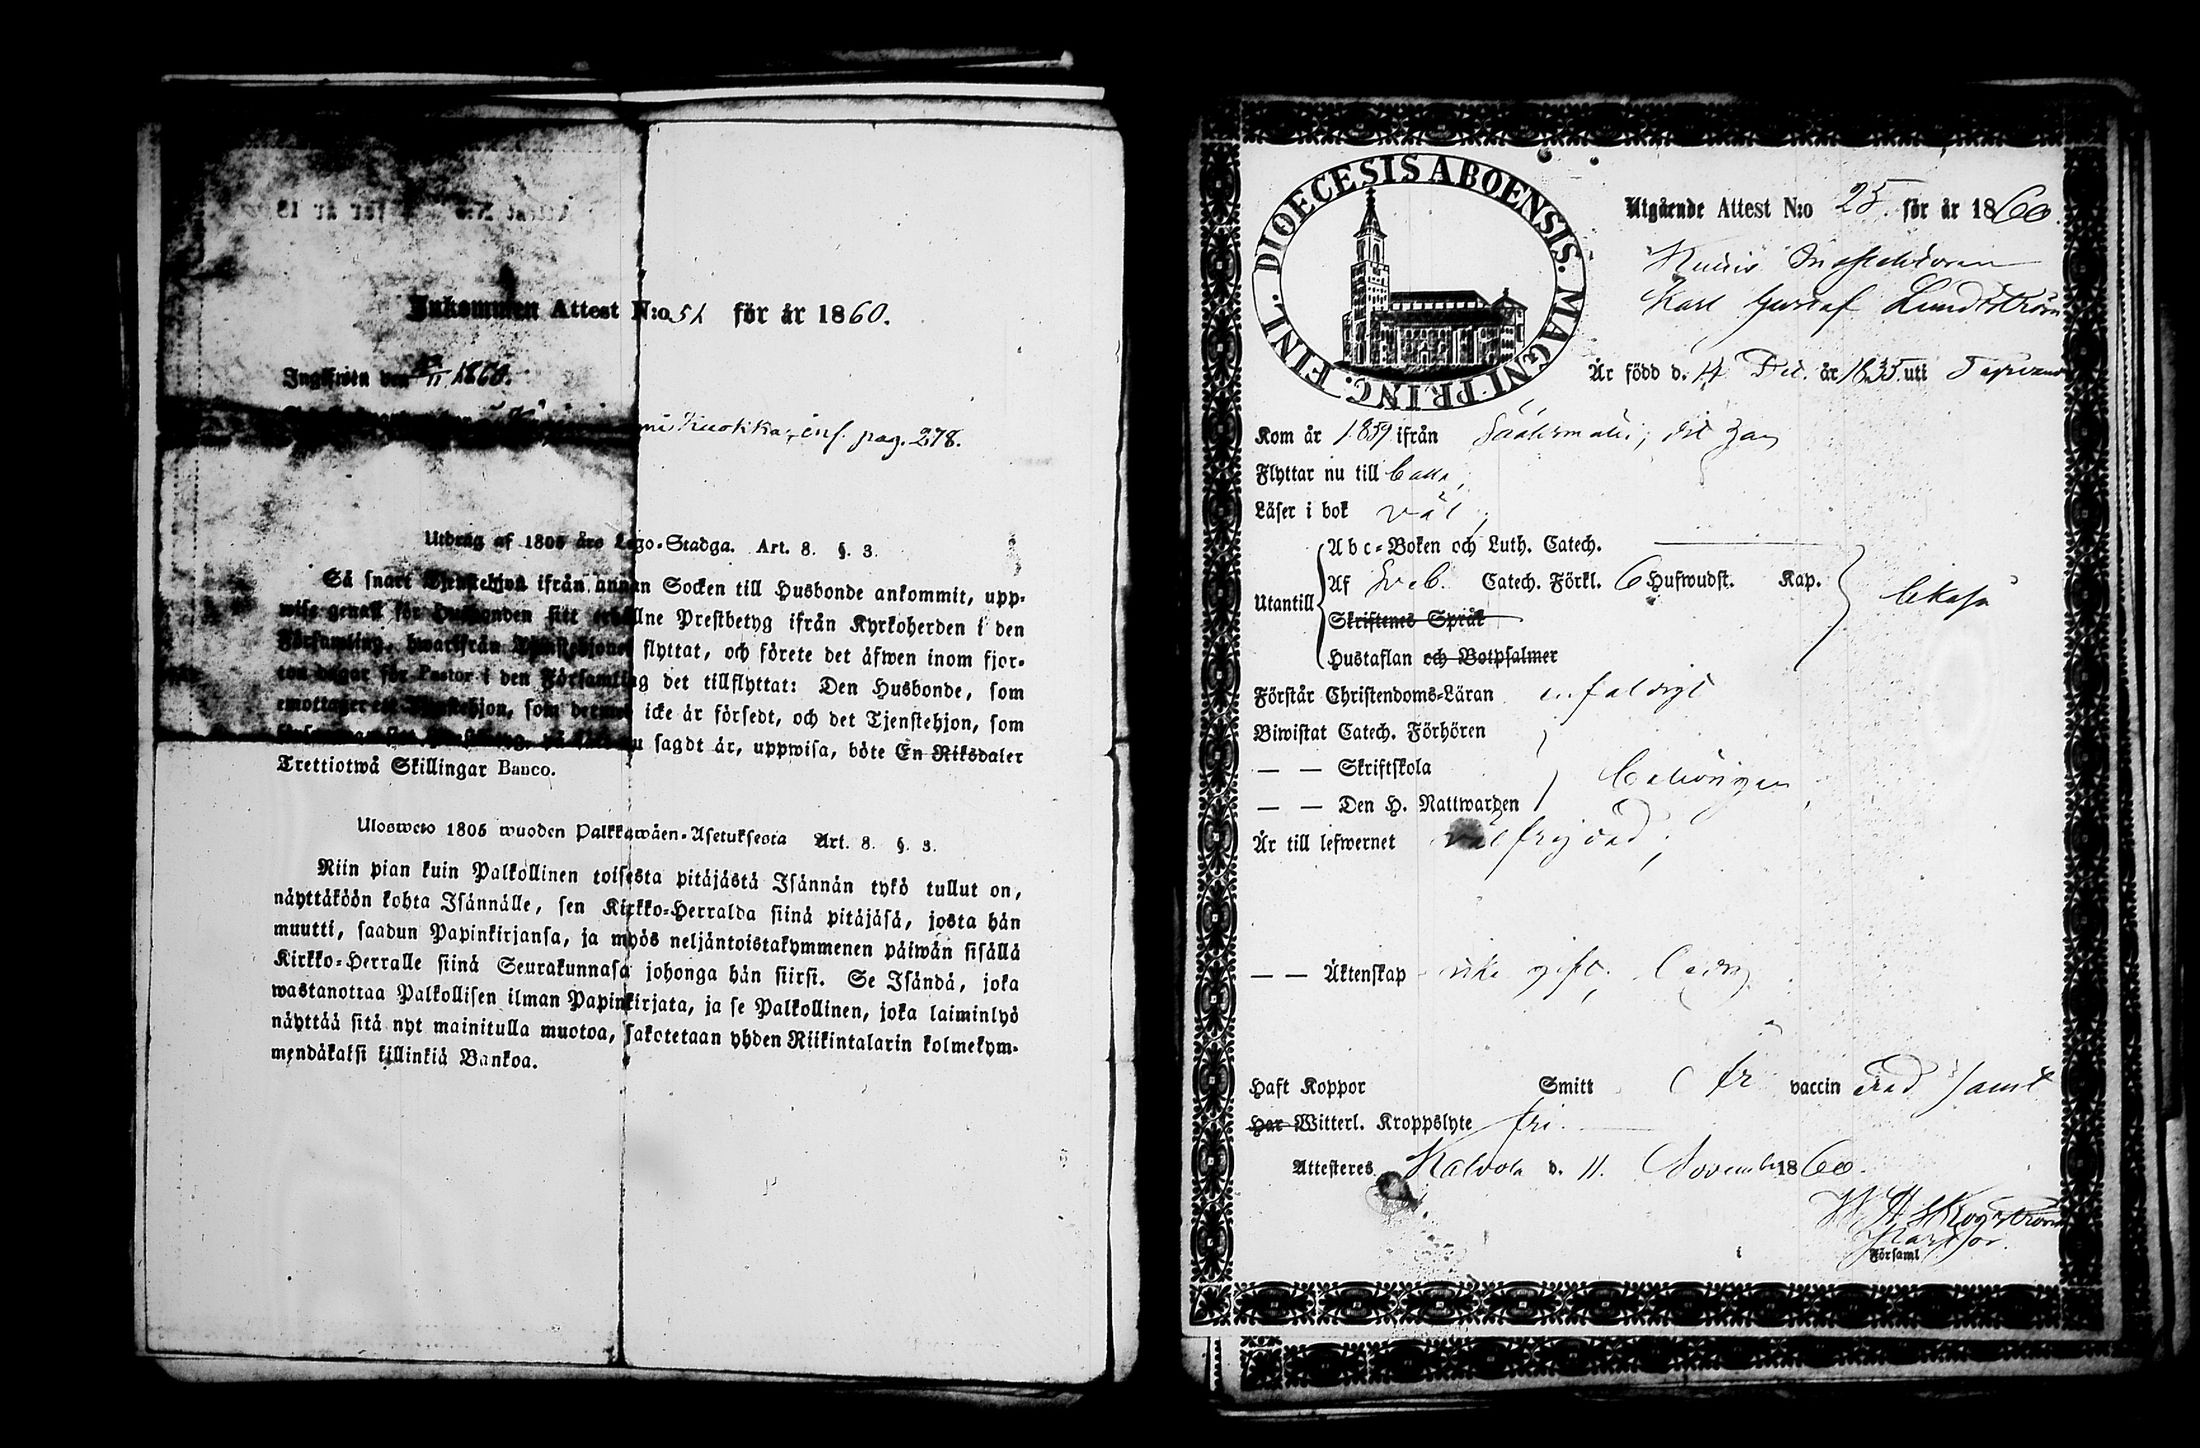 Inkommen Attest N:o 51 för år 1860.
Ingifwen den 11 1860.
inf. pag. 278.
Utdrag af 1805 års Lego-Stadga. Art. 8. §. 3.
Så snart Tjenstehjon ifrån annan Socken till Husbonde ankommit, upp-
wise genast för Husbonden sitt erhållne Prestbetyg ifrån Kyrkoherden i den
Församling, hwarifrån Tjenstehjonet flyttat, och förete det äfwen inom fjor-
ton dagar för Pastor i den Församling det tillflyttat: Den Husbonde, som
emottager ett Tjenstehjon, som dermed icke är försedt, och det Tjenstehjon, som
sagdt är, uppwisa, böte En Riksdaler
Trettiotwå Skillingar Banco.
Ulosweto 1805 wuoden Palkkawäen-Asetuksesta Art. 8. §. 3.
Niin pian kuin Palkollinen toisesta pitäjästä Isännän tykö tullut on,
näyttäköön kohta Isännälle, sen Kirkko-Herralda siinä pitäjäsä, josta hän
muutti, saadun Papinkirjansa, ja myös neljäntoistakymmenen päiwän sisällä
Kirkko-Herralle siinä Seurakunnasa johonga hän siirsi. Se Isändä, joka
wastanottaa Palkollisen ilman Papinkirjata, ja se Palkollinen, joka laiminlyö
näyttää sitä nyt mainitulla muotoa, sakotetaan yhden Riikintalarin kolmekym-
mendäkaksi killinkiä Bankoa.
DIOECESIS ABOENSIS. MAGNI PRINC. FINL.
Utgående Attest N:o 25. för år 1860.
Inspektoren
Karl Gustaf Lundström
Är född d. 14 Dec. år 1835 uti
Kom år 1859 ifrån Sääksmäki;
Flyttar nu till
Läser i bok väl;
Utantill
Abc-Boken och Luth. Catech.
Af Sveb. Catech. Förkl. 6 Hufwudst. Kap.
Skriftenes Språk
Hustaflan och Botpsalmer
Förstår Christendoms-Läran enfaldigt
Biwistat Catech. Förhören
— — Skriftskola
— — Den H. Nattwarden
behörigen
Är till lefwernet välfrejdad;
— — Äktenskap icke gift; ledig.
Haft Koppor Smitt vaccin samt
Har Witterl. Kroppslyte fri.
Attesteres Kalvola d. 11. November 1860.
W H Skogström
Pastor.
i Församl